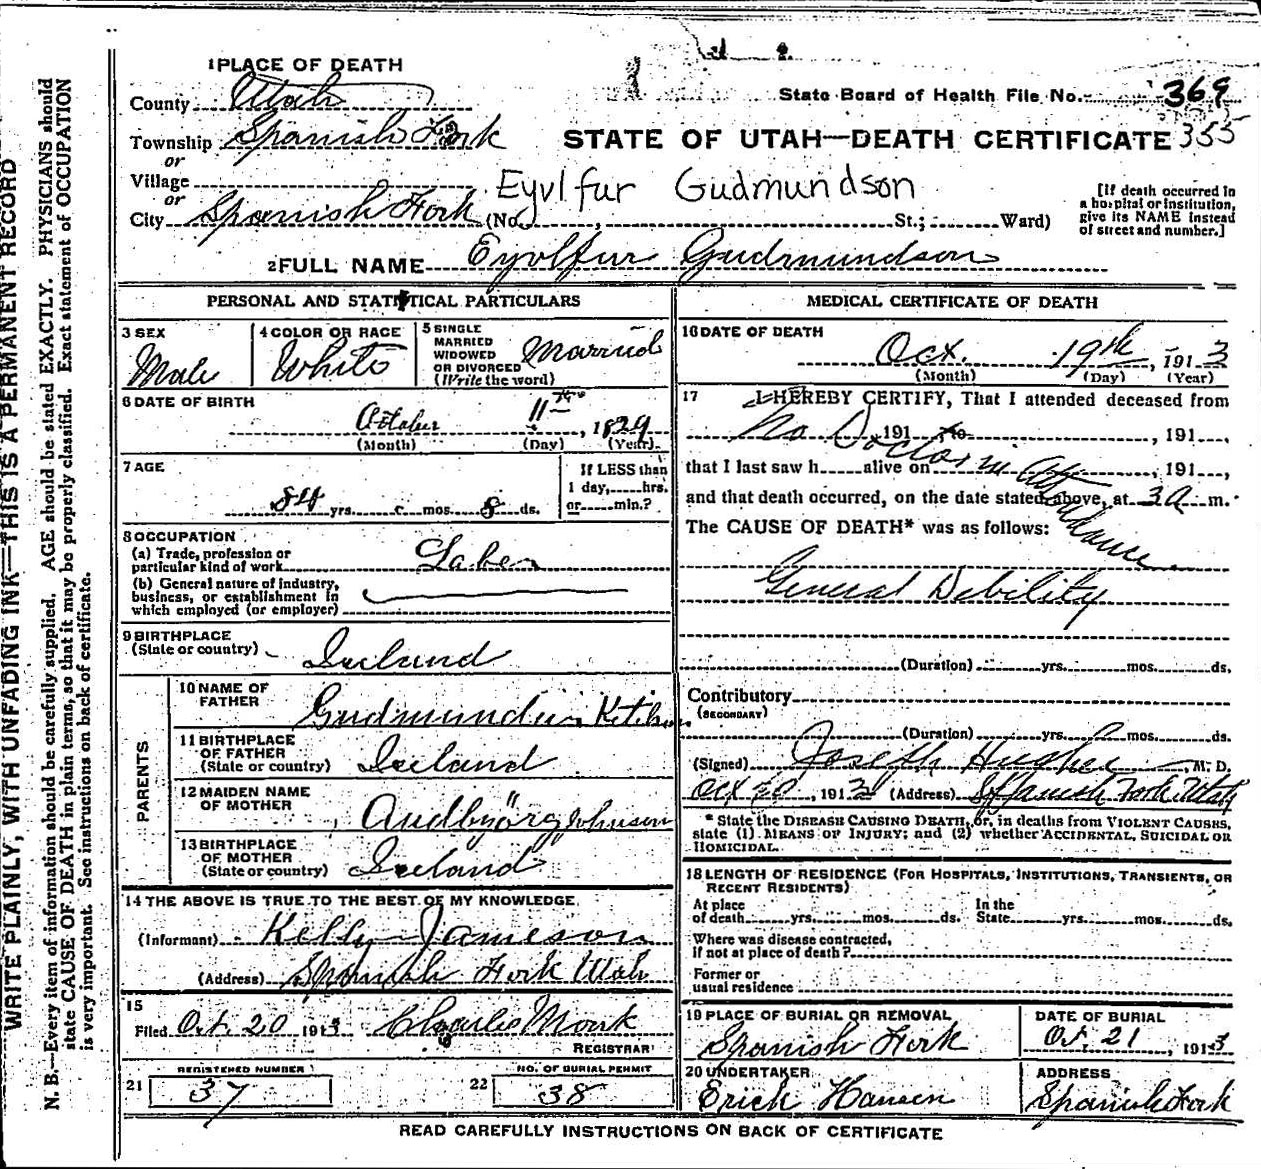 1 PLACE OF DEATH
County Utah
State Board of Health File No. 369
Township Spanish Fork
STATE OF UTAH—DEATH CERTIFICATE 355
or
Village
or
Eyvlfur Gudmundson
City Spanish Fork (No. , St.; Ward)
[If death occurred in a hospital or institution, give its NAME instead of street and number.]
2 FULL NAME Eyvlfur Gudmundson
PERSONAL AND STATISTICAL PARTICULARS
3 SEX
Male
4 COLOR OR RACE
White
5 SINGLE
MARRIED
WIDOWED
OR DIVORCED
(Write the word)
Married
6 DATE OF BIRTH
October 11th, 1829
(Month) (Day) (Year)
7 AGE
84 yrs. mos. 8 ds.
If LESS than
1 day, hrs.
or min.?
8 OCCUPATION
(a) Trade, profession or
particular kind of work Laber
(b) General nature of industry,
business, or establishment in
which employed (or employer)
9 BIRTHPLACE
(State or country)
Iceland
PARENTS
10 NAME OF
FATHER
Gudmundur Ketilson
11 BIRTHPLACE
OF FATHER
(State or country) Iceland
12 MAIDEN NAME
OF MOTHER
Audbjörg Johnson
13 BIRTHPLACE
OF MOTHER
(State or country) Iceland
14 THE ABOVE IS TRUE TO THE BEST OF MY KNOWLEDGE
(Informant) Kelly Jameson
(Address) Spanish Fork Utah
15
Filed Oct. 20 1913 Charles Monk
REGISTRAR
REGISTERED NUMBER
21 37
NO. OF BURIAL PERMIT
22 38
MEDICAL CERTIFICATE OF DEATH
16 DATE OF DEATH
Oct. 19th, 1913
(Month) (Day) (Year)
17 I HEREBY CERTIFY, That I attended deceased from
, 191 , to , 191 ,
No Doctor in Attendance
that I last saw h alive on , 191 ,
and that death occurred, on the date stated above, at 3 a m.
The CAUSE OF DEATH* was as follows:
General Debility
(Duration) yrs. mos. ds.
Contributory
(SECONDARY)
(Duration) yrs. mos. ds.
(Signed) Joseph Hughes, M. D.
Oct 20, 1913 (Address) Spanish Fork Utah
* State the DISEASE CAUSING DEATH, or, in deaths from VIOLENT CAUSES,
state (1) MEANS OF INJURY; and (2) whether ACCIDENTAL, SUICIDAL OR
HOMICIDAL.
18 LENGTH OF RESIDENCE (FOR HOSPITALS, INSTITUTIONS, TRANSIENTS, OR
RECENT RESIDENTS)
At place
of death yrs. mos. ds.
In the
State yrs. mos. ds.
Where was disease contracted,
if not at place of death?
Former or
usual residence
19 PLACE OF BURIAL OR REMOVAL
Spanish Fork
DATE OF BURIAL
Oct. 21, 1913
20 UNDERTAKER
Erick Hansen
ADDRESS
Spanish Fork
READ CAREFULLY INSTRUCTIONS ON BACK OF CERTIFICATE
WRITE PLAINLY, WITH UNFADING INK—THIS IS A PERMANENT RECORD
N. B.—Every item of information should be carefully supplied. AGE should be stated EXACTLY. PHYSICIANS should
state CAUSE OF DEATH in plain terms, so that it may be properly classified. Exact statement of OCCUPATION
is very important. See instructions on back of certificate.